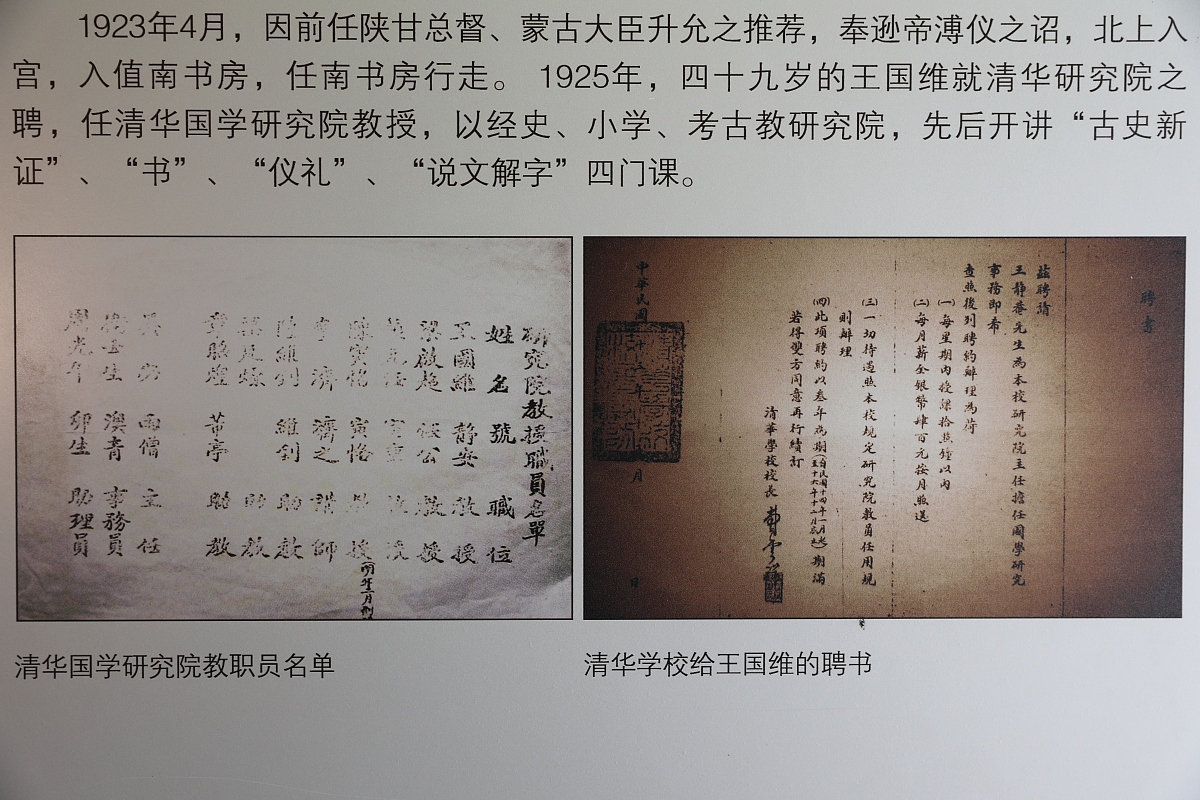 1923年4月，因前任陕甘总督、蒙古大臣升允之推荐，奉逊帝溥仪之诏，北上入
宫，入值南书房，任南书房行走。 1925年，四十九岁的王国维就清华研究院之
聘，任清华国学研究院教授，以经史、小学、考古教研究院，先后开讲“古史新
证”、“书”、“仪礼”、“说文解字”四门课。
研究院教授職員名單
姓名 號 職位
王國維 靜安 教授
梁啟超 任公 教授
陳寅恪 寅恪 教授
李濟 濟之 講師
陸維釗 維釗 助教
章昭煌 芾亭 助教
主任
衛士生 澳青 事務員
周光午 卯生 助理員
聘書
茲聘請
王靜菴先生為本校研究院主任擔任國學研究
事務即希
查照後列聘約辦理為荷
(一)每星期內授課拾點鐘以內
(二)每月薪金銀幣肆百元按月照送
(三)一切待遇照本校規定研究院教員任用規
則辦理
(四)此項聘約以叁年為期(自民國十四年一月起至十六年十二月底止)期滿
若得雙方同意再行續訂
清華學校校長 曹雲祥
中華民國 年 月 日
清华国学研究院教职员名单
清华学校给王国维的聘书